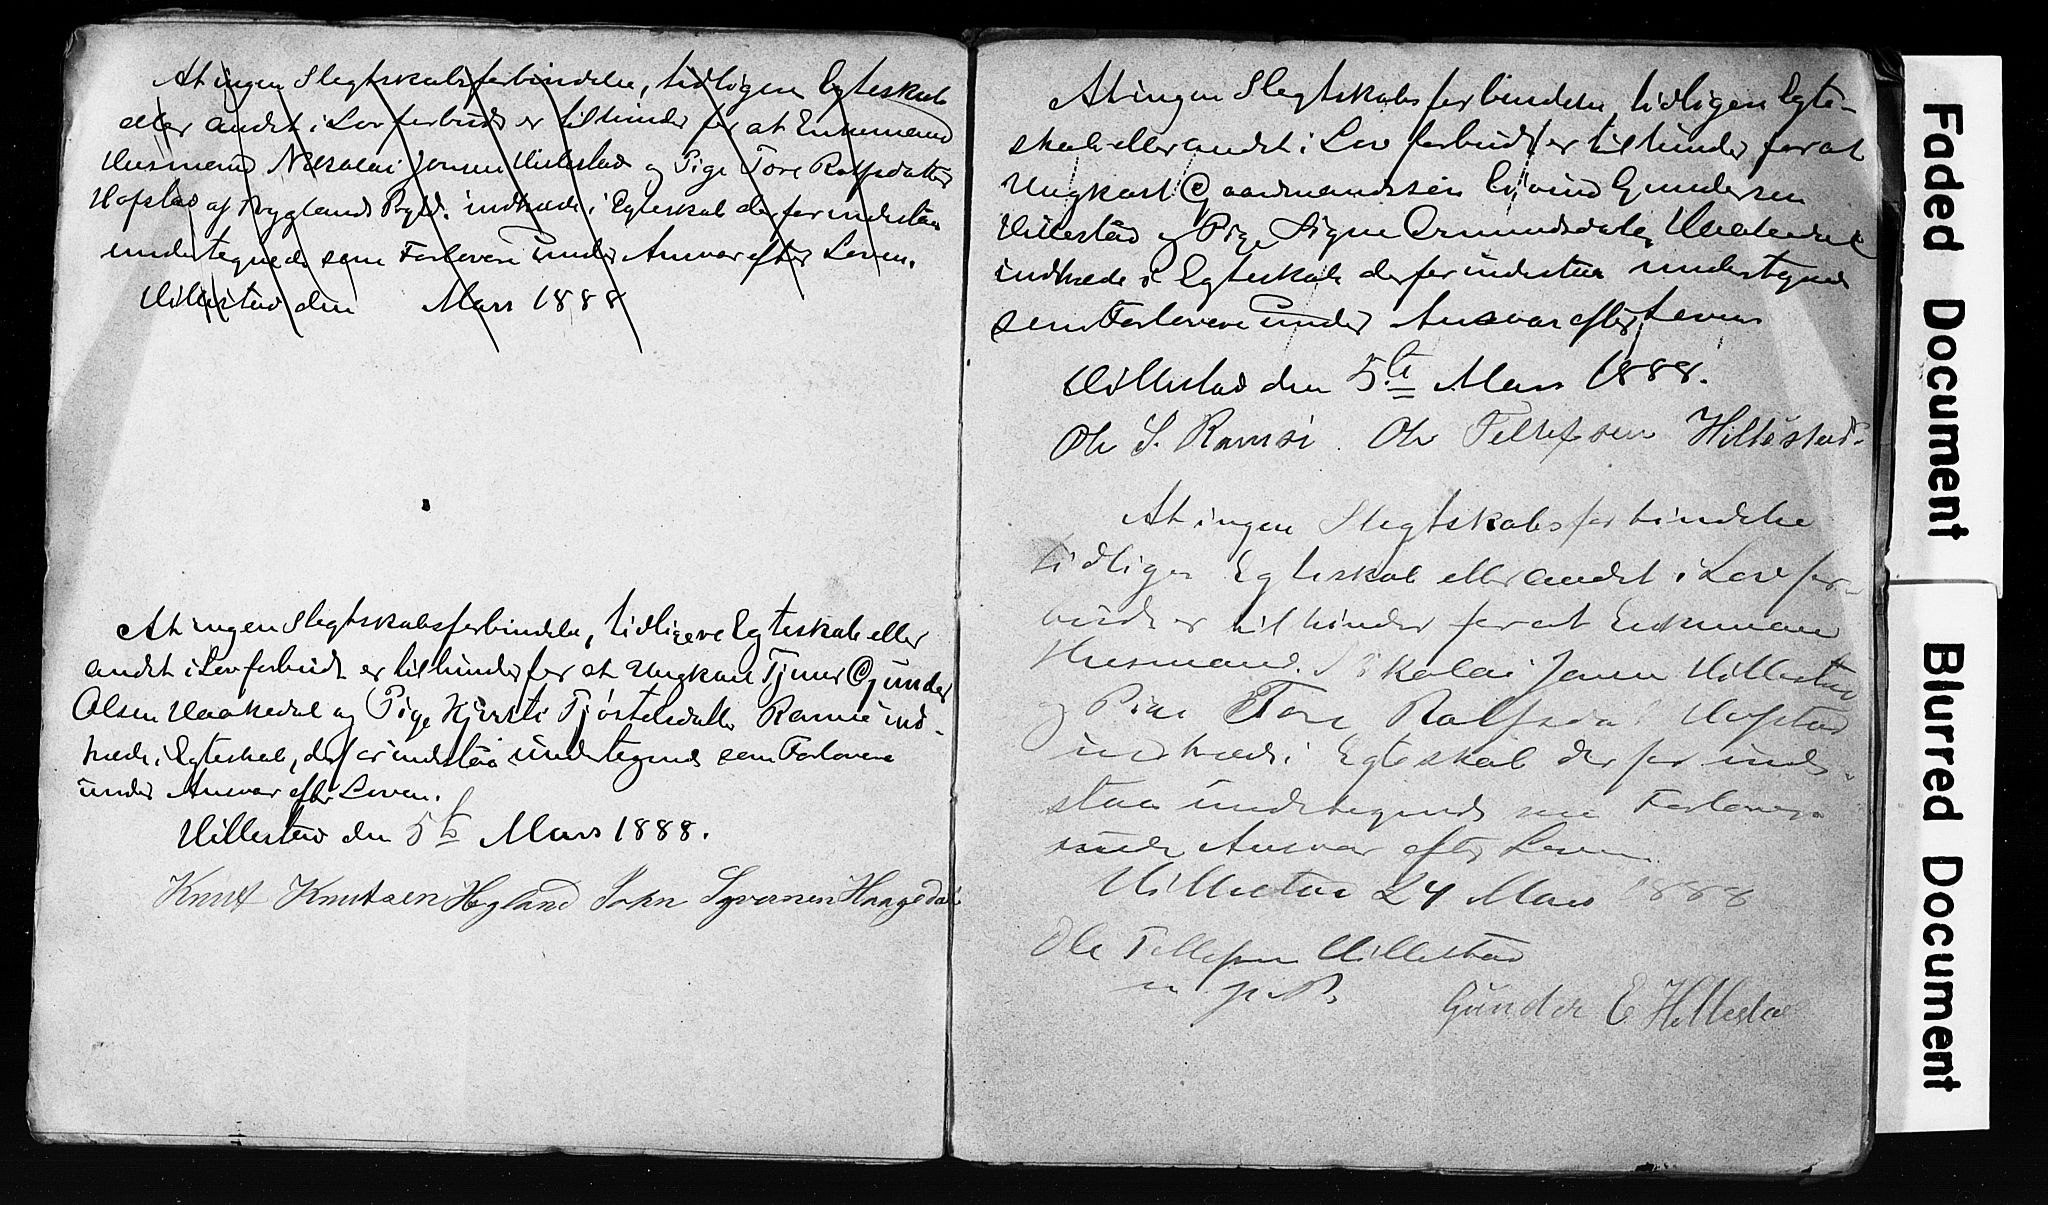 At ingen Slegtskabsforbindelse, tidligere Egteskab
eller andet i Lov forbudt er til hinder for at Enkemand
Husmand Nikolai Jensen Hillestad og Pige Tore Rolfsdatter
Hofstad af Byglands Pgld. indtræde i Egteskab derfor indestaa
undertegnede som Forlovere under Ansvar efter Loven.
Hillestad den Mars 1888
At ingen Slegtskabsforbindelse, tidligere Egteskab eller
andet i Lov forbudt er til hinder for at Ungkarl Gunder
Olsen Haakedal og Pige Kjersti Tjøstelsdatter Ramse ind-
træde i Egteskab, derfor indstaa undertegnede som Forlovere
under Ansvar efter Loven.
Hillestad den 5te Mars 1888.
Knut Knutsen Høgland John Syversen Haagedal
At ingen Slegtskabsforbindelse tidligere Egte-
skab eller andet i Lov forbudt er til hinder for at
Ungkarl Gaardmandssøn Eivind Gundersen
Hillestad og Pige Signe Omundsdatter
indtræde i Egteskab derfor indestaa undertegnede
som Forlovere under Ansvar efter Loven
Hillestad den 5te Mars 1888.
Ole S. Ramse. Ole Tellefsen Hillestad.
At ingen Slegtskabsforbindelse
tidligere Egteskab eller andet i Lov for-
budt er til hinder for at Enkemand
Husmand Nikolai Jensen Hillestad
og Pige Tore Rolfsdat Hofstad
indtræde i Egteskab derfor inde-
staa undertegnede som Forlovere
under Ansvar efter Loven
Hillestad 24 Mars 1888
Ole Tellefsen Hillestad
m. p. P.
Gunder E Hillestad
Faded Document
Blurred Document